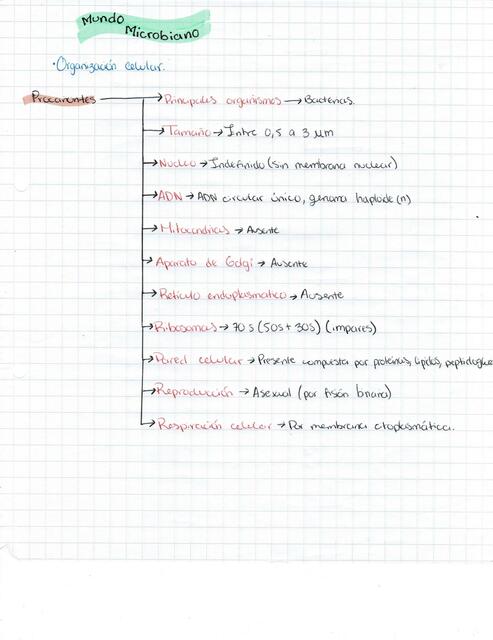 Mundo
Microbiano
· Organización celular.
Procariontes → Principales organismos → Bacterias.
→ Tamaño → Entre 0,5 a 3 µm
→ Núcleo → Indefinido (sin membrana nuclear)
→ ADN → ADN circular único, genoma haploide (n)
→ Mitocondrias → Ausente
→ Aparato de Golgi → Ausente
→ Retículo endoplasmático → Ausente
→ Ribosomas → 70 s (50s + 30s) (impares)
→ Pared celular → Presente compuesta por proteínas, lípidos, peptidogluc
→ Reproducción → Asexual (por fisión binaria)
→ Respiración celular → Por membrana citoplasmática.